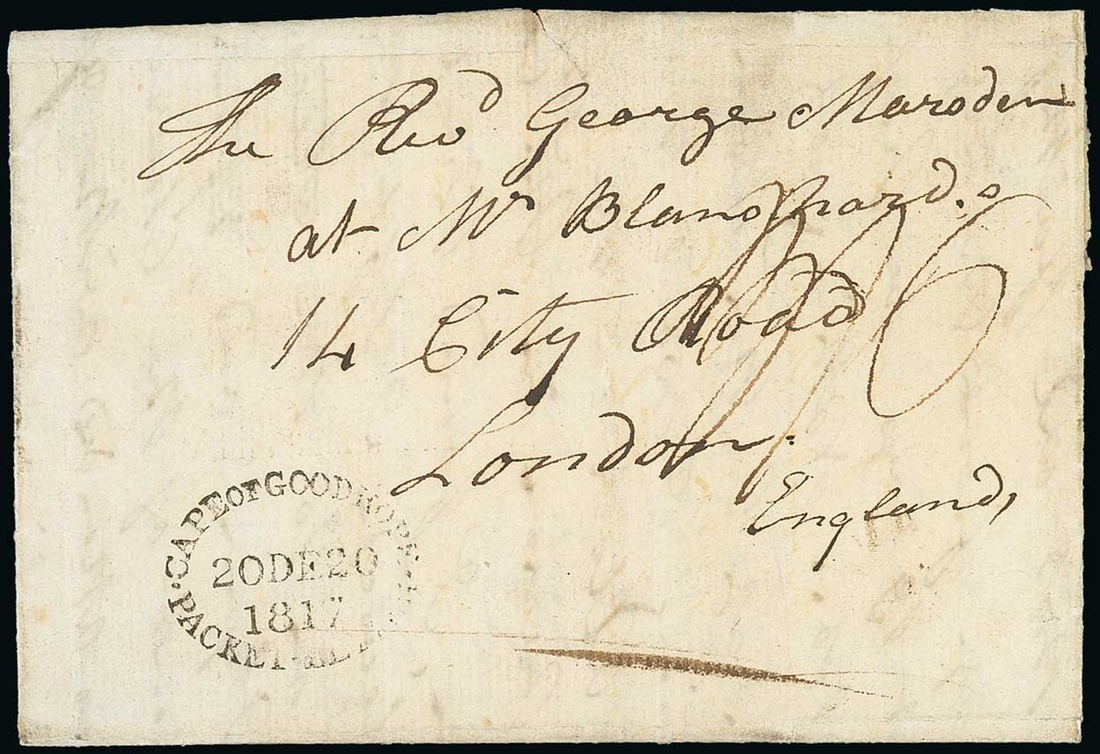 The Revd George Marsden
at Mr Blanshard,s
14 City Road
London.
England,
CAPE OF GOOD HOPE
20DE20
1817
PACKET LETTER